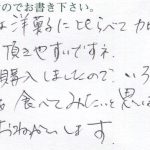 のでお書き下さい。
は洋菓子にくらべてカロ
頂きやすいですネ.
購入しましたので、いろ
も食べてみたいと思いま
おねがいします.